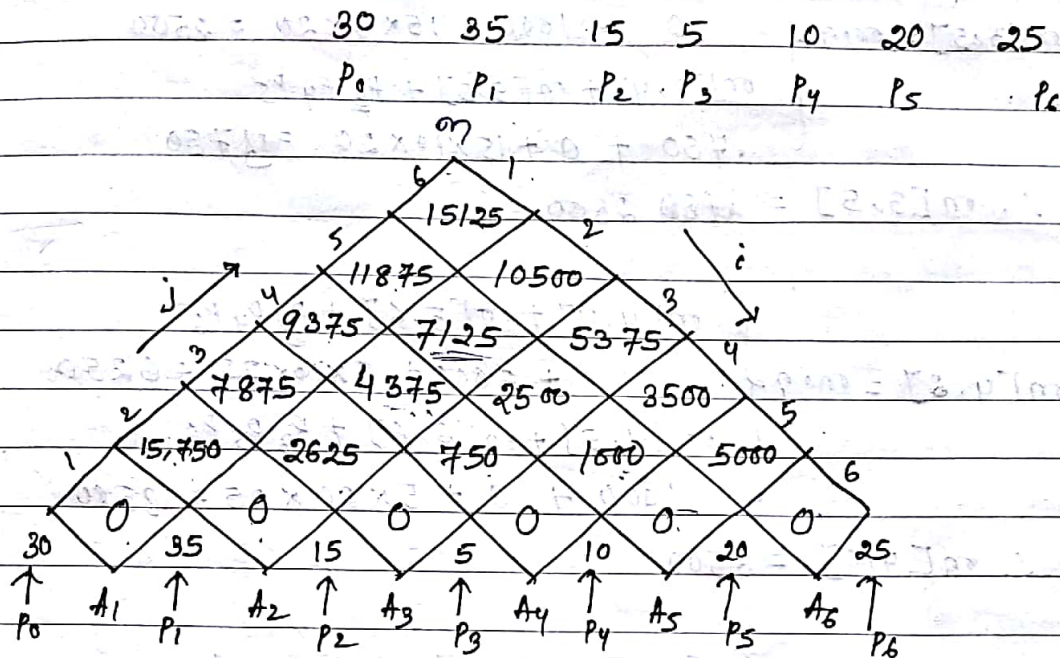 30 35 15 5 10 20 25
P0 P1 P2 P3 P4 P5 P6
m
6 1
15125
5 2
11875 10500
j i
4 3
9375 7125 5375
3 4
7875 4375 2500 3500
2 5
15,750 2625 750 1000 5000
1 6
0 0 0 0 0 0
30 35 15 5 10 20 25
A1 A2 A3 A4 A5 A6
P0 P1 P2 P3 P4 P5 P6